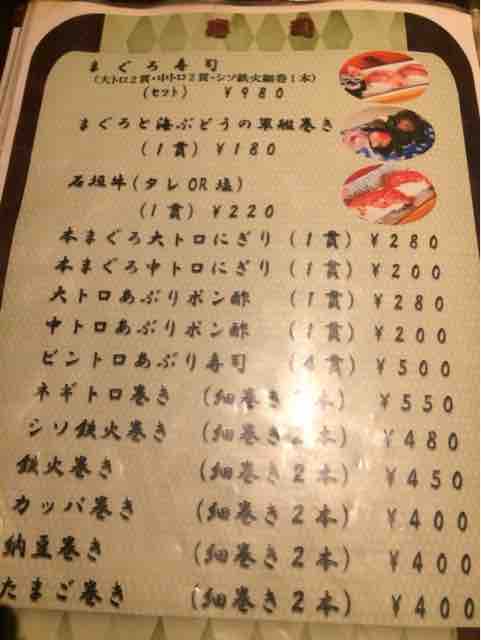 寿司
まぐろ寿司
(大トロ2貫・中トロ2貫・シソ鉄火細巻1本)
(セット) ¥980
まぐろと海ぶどうの軍艦巻き
(1貫) ¥180
石垣牛(タレOR塩)
(1貫) ¥220
本まぐろ大トロにぎり (1貫) ¥280
本まぐろ中トロにぎり (1貫) ¥200
大トロあぶりポン酢 (1貫) ¥280
中トロあぶりポン酢 (1貫) ¥200
ビントロあぶり寿司 (4貫) ¥500
ネギトロ巻き (細巻き2本) ¥550
シソ鉄火巻き (細巻き2本) ¥480
鉄火巻き (細巻き2本) ¥450
カッパ巻き (細巻き2本) ¥400
納豆巻き (細巻き2本) ¥400
たまご巻き (細巻き2本) ¥400